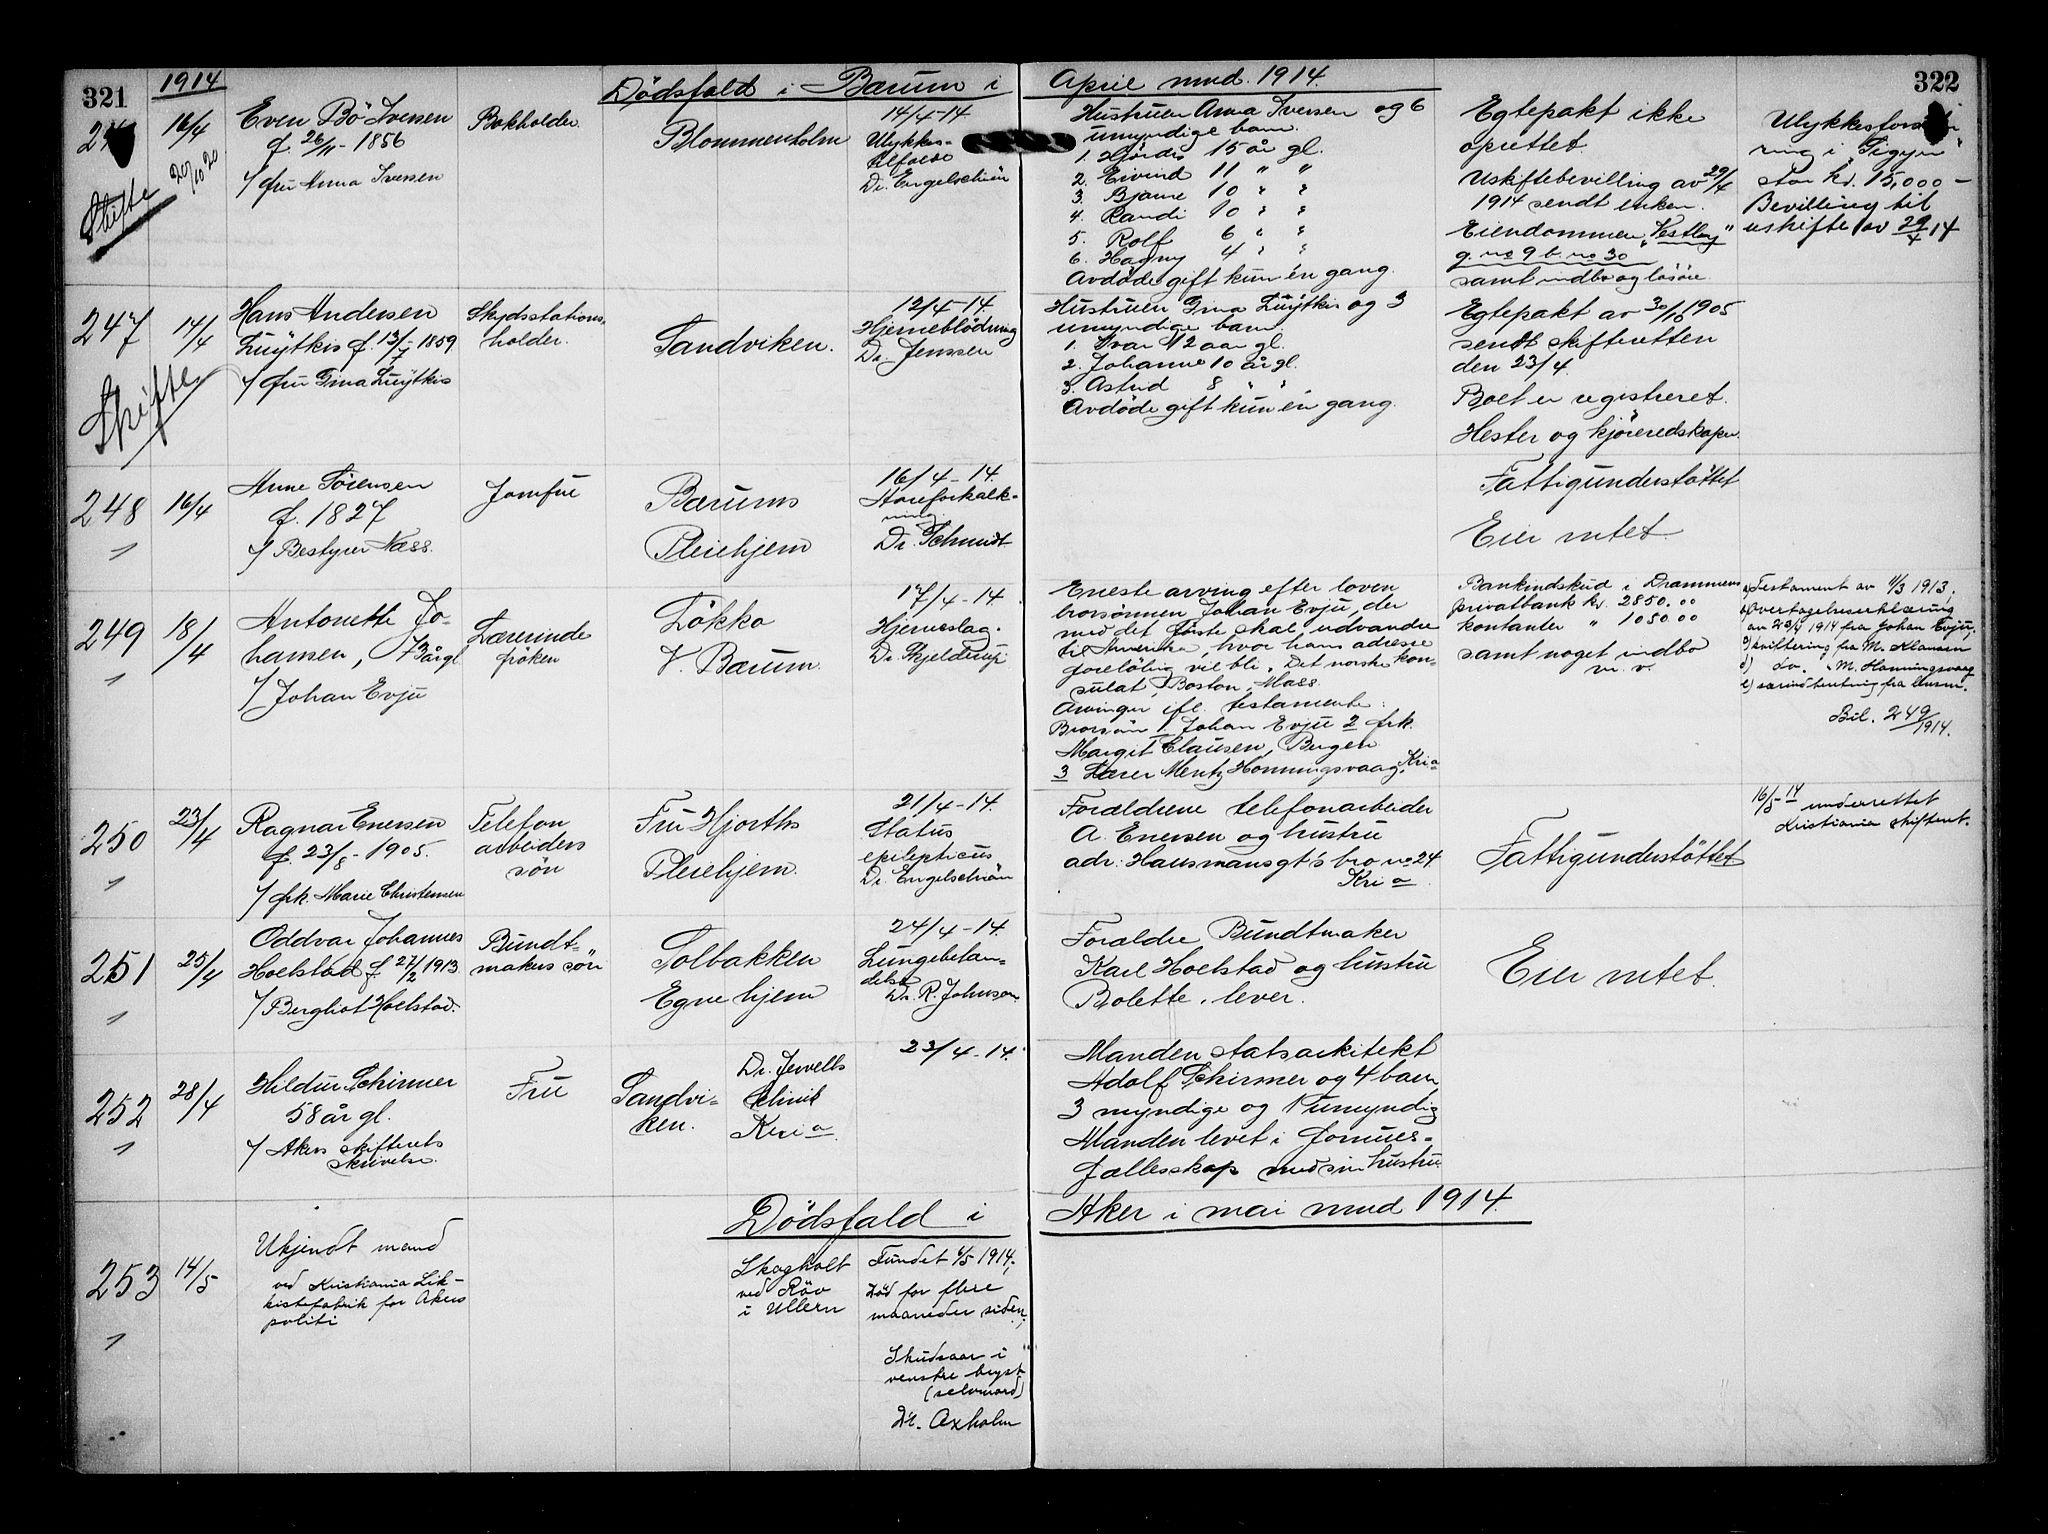 321
1914
Dødsfald i Bærum i April mnd. 1914.
322
16/4
20/10 20
Skifte
Even Bö Iversen
f. 26/11 - 1856
v/ fru Anna Iversen
Bokholder
Blommenholm
14/4-14
Ulykkes-
tilfælde
Dr. Engelschiön
Hustruen Anna Iversen og 6
umyndige barn.
1. Hjördis 15 år gl.
2. Eivind 11 " "
3. Bjarne 10 " "
4. Randi 10 " "
5. Rolf 6 " "
6. Hagny 4 " "
Avdöde gift kun én gang.
Egtepakt ikke
oprettet
Uskiftebevilling av 29/4
1914 sendt enken.
Eiendommen "Vestly"
g. no 9 b. no 30
samt indbo og løsöre.
ring i "Sigyn"
stor kr. 15,000 -
Bevilling til
uskifte av 29/4 14
247
Skifte
14/4
Hans Andersen
f. 13/7 1859
v/ fru Gina
Skydsstations-
holder.
Sandviken.
12/4-14.
Hjerneblödning
Dr. Jenssen
Hustruen Gina og 3
umyndige barn
1. Ivar 12 aar gl.
2. Johanne 10 år gl.
3. Astrid 8 " "
Avdöde gift kun én gang.
Egtepakt av 30/10 1905
sendt skifteretten
den 23/4.
Boet er registreret.
Hester og kjöreredskaper.
248
16/4
Anne Sörensen
f. 1827
v/ Bestyrer Næss.
Jomfru
Bærums
Pleiehjem
16/4-14.
Aareforkalk-
ning.
Dr. Schmidt
Fattigunderstöttet
Eier intet.
249
18/4
Antonette Jo-
hansen, 73 år gl.
v/ Johan Evju
Lærerinde
fröken
Lökka
V. Bærum.
17/4-14.
Hjerneslag.
Dr. Skjelderup
Eneste arving efter loven
brorsönnen Johan Evju, der
med det förste skal utvandre
til Amerika, hvor hans adresse
foreløbig vil bli. Det norske kon-
sulat, Boston, Mass.
Arvinger ifl. testamente:
Brorsön 1 Johan Evju 2 frk.
Margit Clausen, Bergen
3 Lærer Mentz Honningsvaag, Kria
Bankindskud i Drammens
privatbank kr. 2850.00
kontanter " 1050.00
samt noget indbo
m. v.
a) Testament av 11/3 1913.
b) Overtagelseserklæring
av 23/4 1914 fra Johan Evju,
c) kvittering fra M. Klausen
d) do. " M. Honningsvaag
Bil. 249/1914.
250
23/4
Ragnar Enersen
f. 23/8 - 1905.
v/ frk. Marie Christensen
Telefon
arbeiders
sön
Fru Hjorths
Pleiehjem.
21/4-14.
Status
epilepticus
Dr. Engelschiön
Forældrene telefonarbeider
A. Enersen og hustru
adr: Hausmansgt's bro no 24
Kria.
Fattigunderstöttet
16/5 14 underrettet
Kristiania skifteret.
251
25/4
Oddvar Johannes
Hoelstad f. 27/2 1913
v/ Bergliot Hoelstad.
Bundt-
makers sön
Solbakken
Egne hjem
24/4-14.
Lungebetæn-
delse
Dr. R. Johnson
Forældre Bundtmaker
Karl Hoelstad og hustru
Bolette, lever.
Eier intet.
252
28/4
Hildur Schirmer
58 år gl.
v/ Akers skifterets
skrivelse.
Fru
Sandvi-
ken.
Dr. Jervells
klinik
Kria.
23/4-14.
Manden statsarkitekt
Adolf Schirmer og 4 barn,
3 myndige og 1 umyndig
Manden levet i formues-
fællesskap med sin hustru.
Dødsfald i Aker i mai mnd 1914.
253
14/5
Ukjendt mand
ved Kristiania Lik-
kistefabrik for Akers
politi
Skogholt
ved Röa
i Ullern
Fundet 4/5 1914;
Död for flere
maaneder siden;
Skudsaar i
venstre bryst
(selvmord)
Dr. Axholm